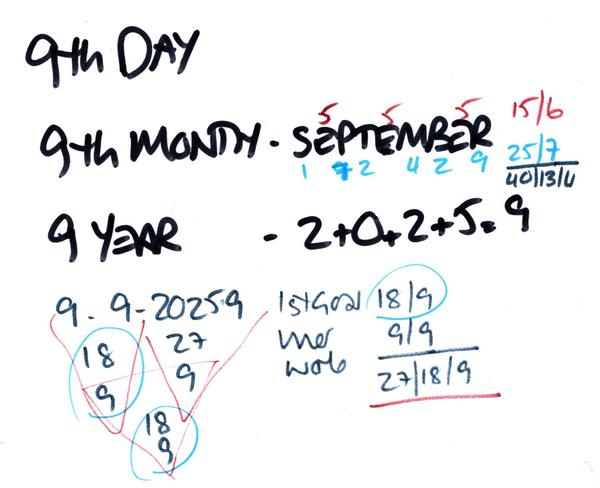 9th DAY
5 5 5 15/6
9th MONTH - SEPTEMBER
1 7 2 4 2 9 25/7
40/13/4
9 YEAR - 2+0+2+5=9
9 - 9 - 2025.9 1st Goal 18/9
18 27 9/9
9 9 27/18/9
18
9